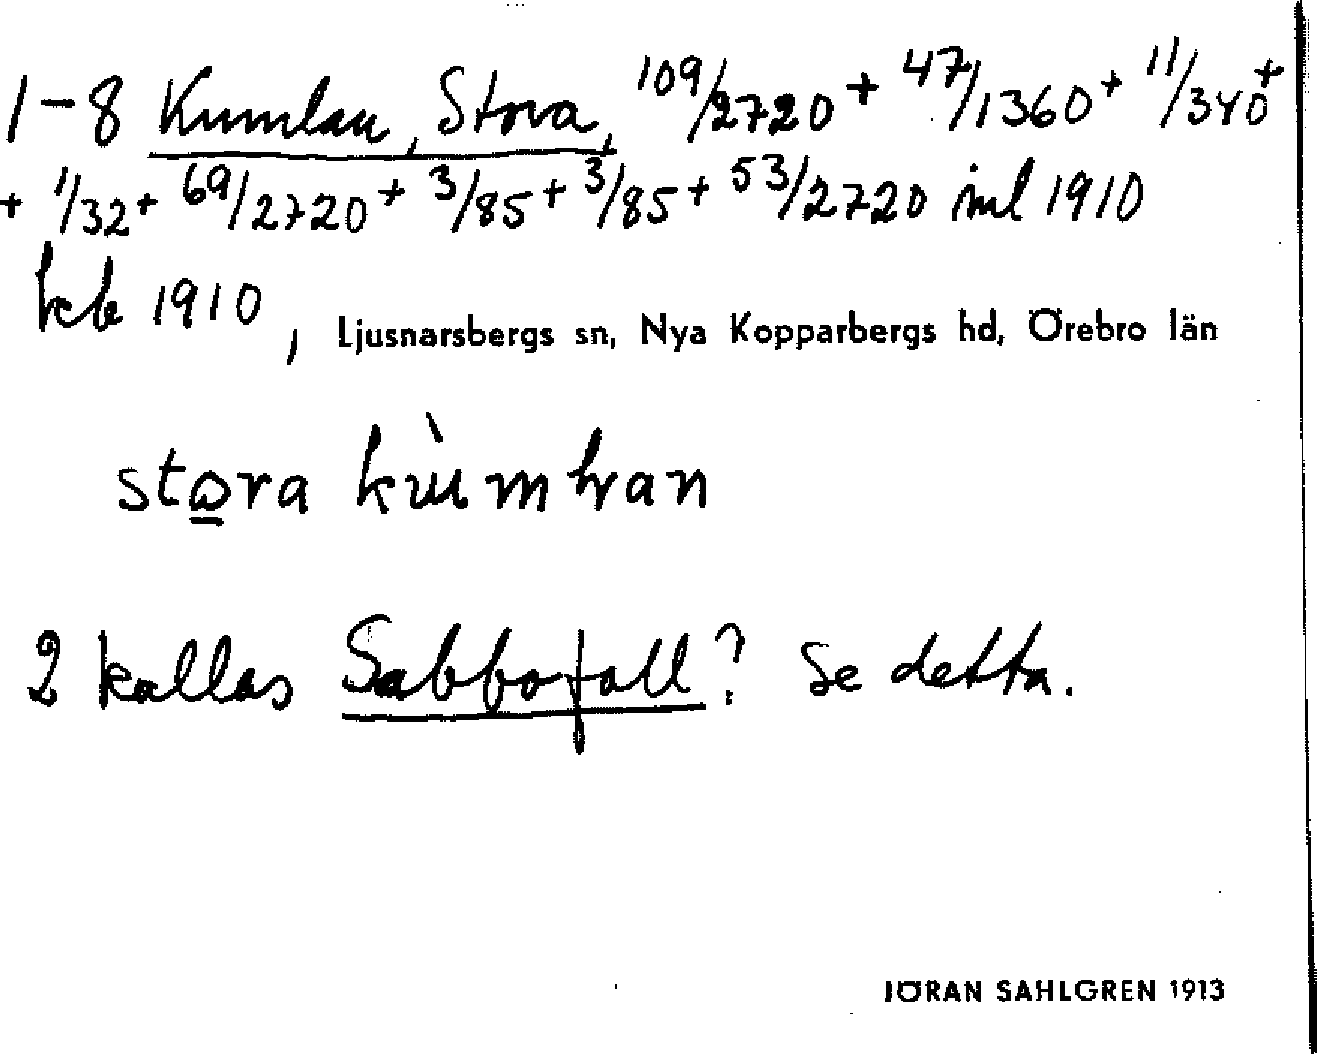 1–8 Kumlan, Stora, 109/2720 + 47/1360 + 11/340 +
+ 1/32 + 69/2720 + 3/85 + 3/85 + 53/2720 ml 1910
1910, Ljusnarsbergs sn, Nya Kopparbergs hd, Örebro län
stora
2 kallas Sabbofall? Se detta.
JÖRAN SAHLGREN 1913